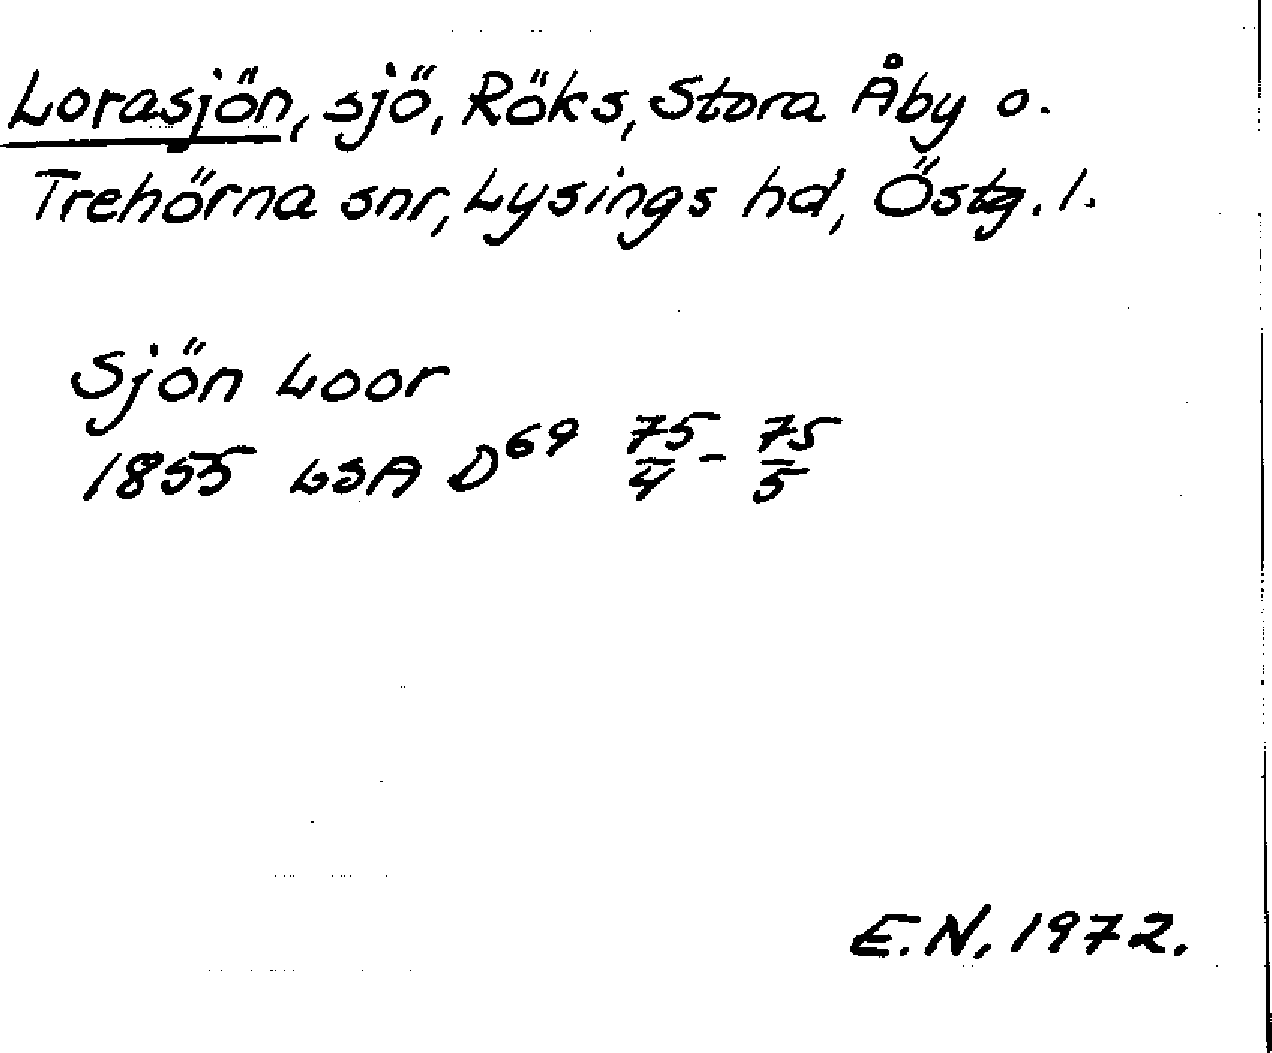 Lorasjön, sjö, Röks, Stora Åby o.
Trehörna snr, Lysings hd, Östg. l.
Sjön Loor
1855 LSA D⁶⁹ 75/4 - 75/5
E.N, 1972.